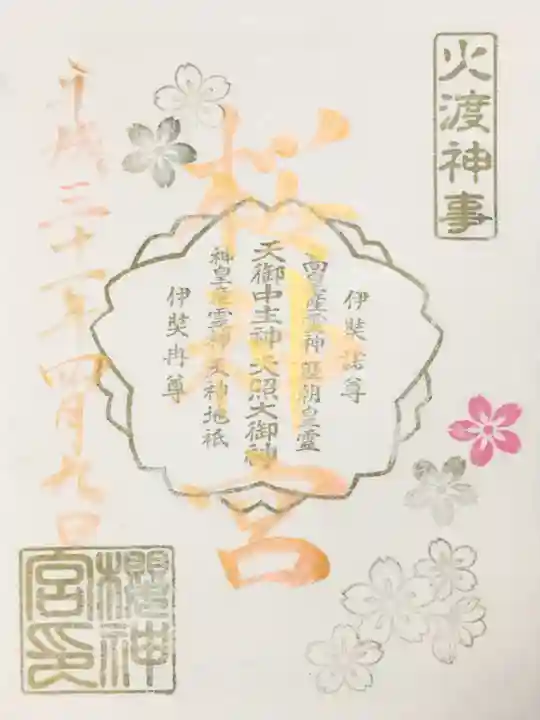 火渡神事
桜神宮
伊奘諾尊
高皇産霊神歴朝皇霊
天御中主神天照大御神
神皇産霊神天神地祇
伊奘冉尊
平成三十一年四月九日
櫻神
宮印